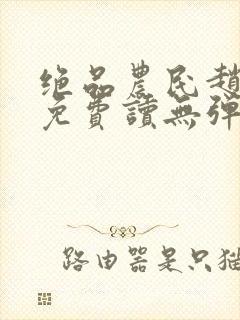 绝品農民趙
免費讀無彈
路由器是只猫